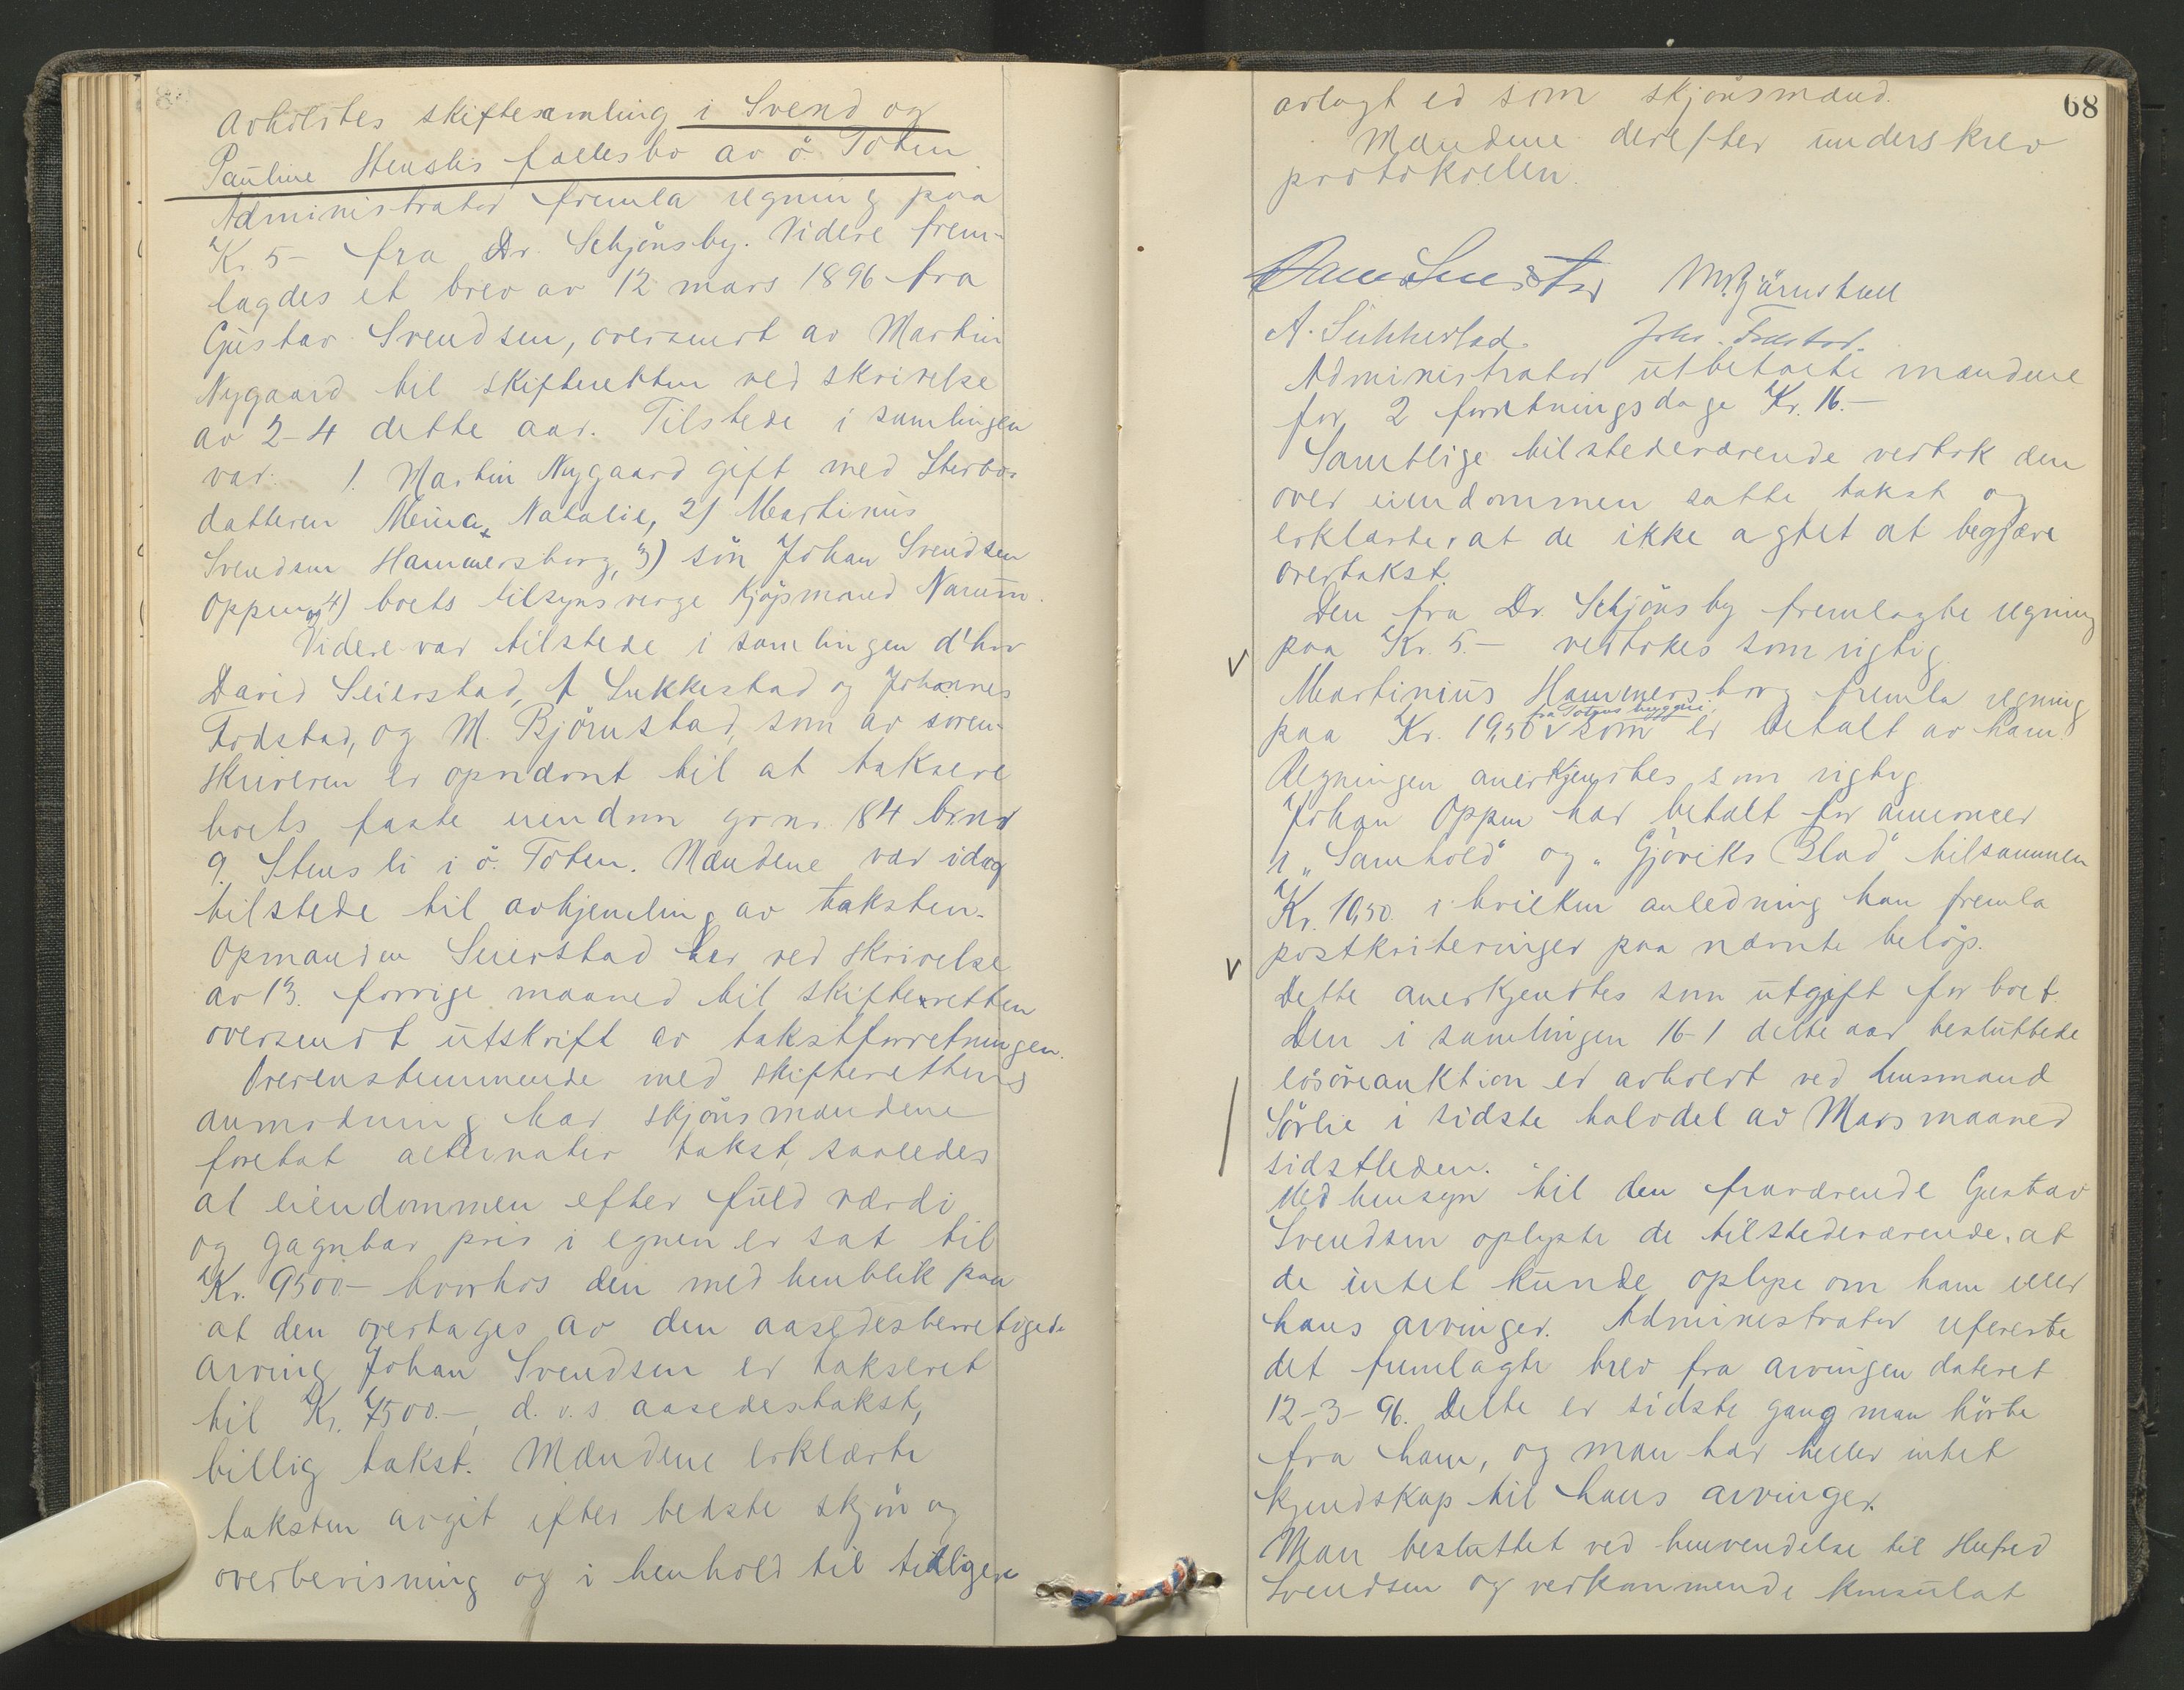 avholdtes skiftesamling i Svend og
Pauline Stenslis fællesbo av ö. Toten.
Administrator fremla regning paa
Kr. 5 – fra Dr. Schjönsby. Videre frem-
lagdes et brev av 12 mars 1896 fra
Gustav Svendsen, oversendt av Martin
Nygaard til skifteretten ved skrivelse
av 2-4 dette aar. Tilstede i samlingen
var: 1. Martin Nygaard gift med Sterbo-
datteren Mina Natalie, 2) Martinius
Svendsen Hammersborg, 3) sön Johan Svendsen
Oppen og 4) boets tilsynsverge kjöpmand Narum.
Videre var tilstede i samlingen d'hrr
David Seierstad, A Sukkestad og Johannes
Fodstad, og M. Björnstad, som av soren-
skriveren er opnævnt til at taksere
boets faste eiendom grnr. 184 brnr
9 Stensli i ö. Toten. Mændene var idag
tilstede til avhjemling av taksten.
Opmanden Seierstad har ved skrivelse
av 13. forrige maaned til skifteretten
oversendt utskrift av takstforretningen.
Overensstemmende med skifterettens
anmodning har skjönsmændene
foretat alternativ takst, saaledes
at eiendommen efter fuld værdi
og gagnbar pris i egnen er sat til
Kr. 9500– hvorhos den med henblik paa
at den overtages av den aasædesberretigede
arving Johan Svendsen er taksert
til Kr. 7500.–, d. v. s aasædestakst,
billig takst. Mændene erklærte
taksten avgit efter bedste skjön og
overbevisning og i henhold til tidligere
68
avlagt ed som skjönsmænd.
Mændene derefter underskrev
protokollen.
M. Björnstad
A. Sukkestad. Johs. Fodstad.
Administrator utbetalte mændene
for 2 forretningsdage Kr. 16.–
Samtlige tilstedeværende vedtok den
over eiendommen satte takst og
erklærter at de ikke agtet at begjære
overtakst.
Den fra Dr. Schjönsby fremlagte regning
paa Kr. 5.– vedtokes som rigtig.
Martinius Hammersborg fremla regning
fra Totens byggeri
paa Kr. 19,50 v som er betalt av ham.
Regningen anerkjendtes som rigtig
Johan Oppen har betalt for annoncer
i „Samhold" og „Gjöviks Blad" tilsammen
Kr. 10,50. i hvilken anledning han fremla
postkviteringer paa nævnte belöp.
Dette anerkjendtes som utgift for boet.
Den i samlingen 16-1 dette aar besluttede
lösöreauktion er avholdt ved lensmand
Sörlie i sidste halvdel av Mars maaned
sidstleden.
Med hensyn til den fraværende Gustav
Svendsen oplyste de tilstedeværende, at
de intet kunde oplyse om ham eller
hans arvinger. Administrator refererte
det fremlagte brev fra arvingen dateret
12-3-96. Dette er sidste gang man hörte
fra ham, og man har heller intet
kjendskap til hans arvinger.
Man besluttet ved henvendelse til
Svendsen og vedkommende konsulat